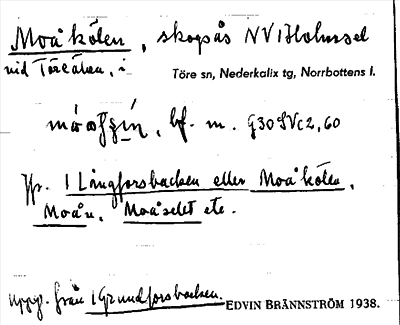 Moåkölen, skogsås NV i Holmsel
vid Töreälven, i Töre sn, Nederkalix tg, Norrbottens l.
bf. m. G30SVc2,60
Jfr. 1 Långforsbacken eller Moåkölen,
Moån, Moåselet etc.
Uppg. från 1 Grundforsbacken. EDVIN BRÄNNSTRÖM 1938.